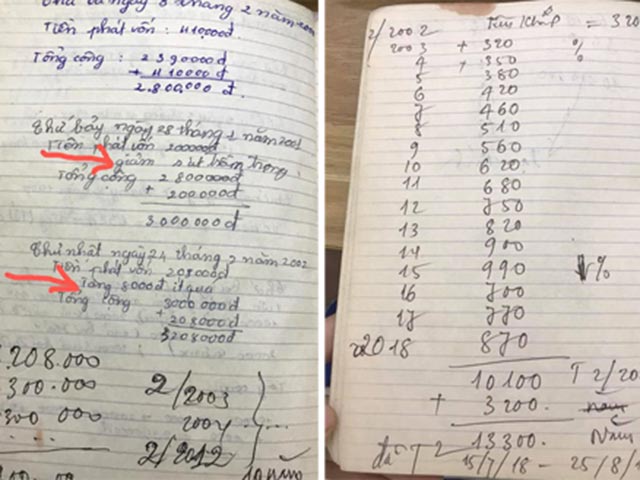 Tiền phát vốn : 410000đ
Tổng cộng : 2390000đ
+ 410000đ
2.800,000đ
Thứ bảy ngày 28 tháng 1 năm 2001
Tiền phát vốn 200000đ
giảm sút trầm trọng
Tổng cộng 2800000đ
+ 200000đ
3000000đ
Thứ nhật ngày 24 tháng 2 năm 2002
Tiền phát vốn 208000đ
Tăng 8000đ ít quá
Tổng cộng 3000000đ
+ 208000đ
3208000đ
.208.000
300.000 2/2003
300 000 2004 ...
2/2012
10 năm
2/2002 = 320
2003 + 320 %
4 + 350 %
5 380
6 420
7 460
8 510
9 560
10 620
11 680
12 750
13 820
14 900
15 990 ↓%
16 700
17 770
2018 870
10100 T 2/20
+ 3200.
13300. Năm
đã T 2 15/7/18 - 25/8/1